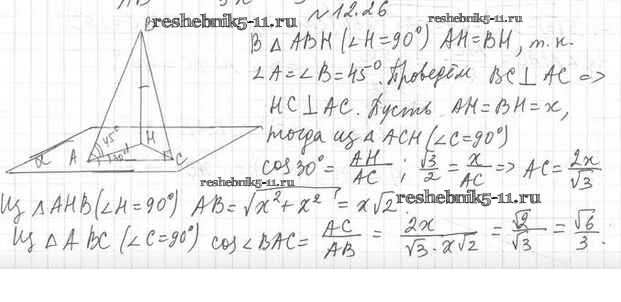 №12.26
reshebnik5-11.ru
reshebnik5-11.ru
В △ ABH (∠H=90°) AH=BH, т.к.
∠A=∠B=45°. Проведём BC⊥AC =>
HC⊥AC. Пусть AH=BH=x,
тогда из △ ACH (∠C=90°)
cos30° = AH/AC ; √3/2 = x/AC => AC = 2x/√3
B
45°
30°
H
A
C
α
reshebnik5-11.ru
reshebnik5-11.ru
Из △ AHB (∠H=90°) AB = √(x²+x²) = x√2.
Из △ ABC (∠C=90°) cos∠BAC = AC/AB = 2x/(√3·x√2) = √2/√3 = √6/3.